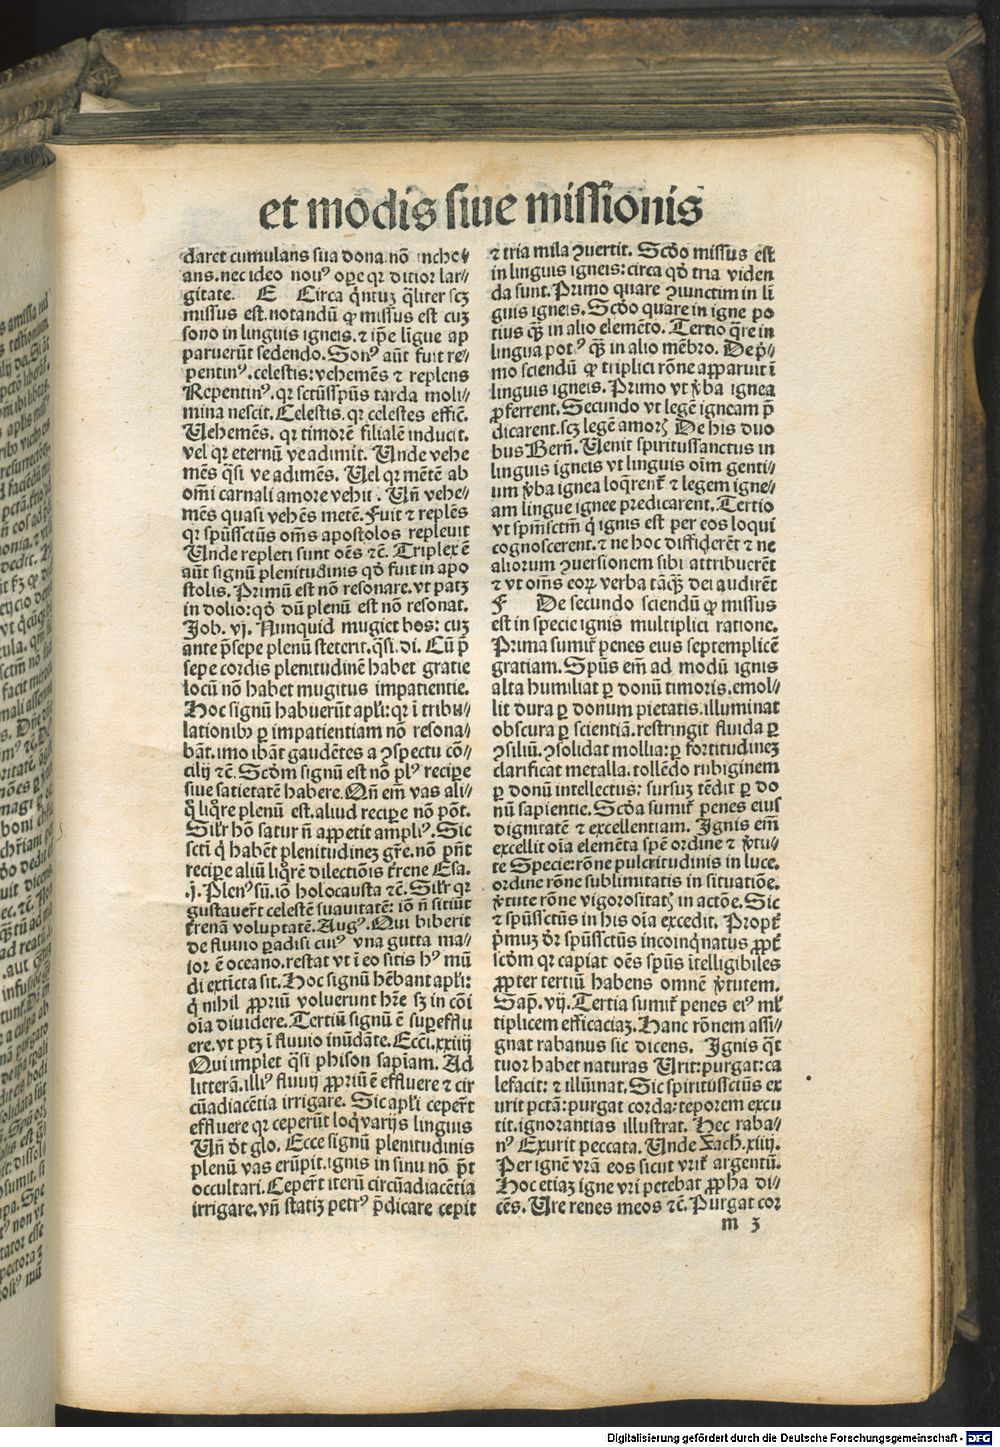 et modis siue missionis
daret cumulans sua dona. nõ inche⸗
ans. nec ideo nouꝰ oꝑe qr ditior lar⸗
gitate. E Circa q̃ntuꝫ q̃liter scꝫ
missus est. notandũ ꝙ missus est cuꝫ
sono in linguis igneis. ⁊ ip̃e lĩgue ap
paruerũt sedendo. Sonꝰ aũt fuit re⸗
pentinꝰ. celestis: vehemẽs ⁊ replens
Repentinꝰ. qr sctũsspũs tarda moli⸗
mina nescit. Celestis. qr celestes effic̃.
Uehemẽs. qr timorẽ filialẽ inducit.
vel qr eternũ ve adimit. Unde vehe
mẽs q̃si ve adimẽs. Uel qr mẽtẽ ab
om̃i carnali amore vehit. Uñ vehe⸗
mẽs quasi vehẽs metẽ. Fuit ⁊ replẽs
qr spũssctũs om̃s apostolos repleuit
Unde repleti sunt oẽs ⁊c̃. Triplex ẽ
aũt signũ plenitudinis qd̃ fuit in apo
stolis. Primũ est nõ resonare. vt patꝫ
in dolio: qd̃ dũ plenũ est nõ resonat.
Job. vj. Nunquid mugiet bos: cuꝫ
ante p̃sepe plenũ steterit. q̃si. di. Cũ p̃
sepe cordis plenitudinẽ habet gratie
locũ nõ habet mugitus impatientie.
Hoc signũ habuerũt apl̃i: qr ĩ tribu⸗
lationibꝰ ꝑ impatientiam nõ resona⸗
bãt. imo ibãt gaudẽtes a ꝯspectu cõ⸗
cilij ⁊c̃. Scd̃m signũ est nõ plꝰ reciꝑe
siue satietatẽ habere. Qñ em̃ vas ali⸗
q̃ liq̃re plenũ est. aliud reciꝑe nõ põt.
Silr̃ hõ satur ñ appetit ampliꝰ. Sic
sctĩ q̃ habẽt plenitudineꝫ gr̃e. nõ pñt
reciꝑe aliũ liq̃rẽ dilectiõis tr̃rene Esa.
.j. Plenꝰ sũ. iõ holocausta ⁊c̃. Silr̃ qr
gustauer̃t celestẽ suauitatẽ: iõ ñ sitiũt
tr̃renã voluptatẽ. Augꝰ. Qui biberit
de fluuio ꝑadisi cuiꝰ vna gutta ma⸗
ior ẽ oceano. restat vt ĩ eo sitis hꝰ mũ
di extĩcta sit. Hoc signũ hẽbant apl̃i:
q̃ nihil ꝓpriũ voluerunt hr̃e sꝫ in cõi
oĩa diuidere. Tertiũ signũ ẽ suꝑefflu
ere. vt ptꝫ ĩ fluuio inũdãte. Ecci. xxiiij
Qui implet q̃si phison sapĩam. Ad
litterã. illiꝰ fluuij ꝓpriũ ẽ effluere ⁊ cir
cũadiacẽtia irrigare. Sic apl̃i ceper̃t
effluere qr ceperũt loq̃ varijs linguis
Uñ dr̃t glo. Ecce signũ plenitudinis
plenũ vas erũpit. ignis in sinu nõ p̃t
occultari. Ceper̃t iterũ circũadiacẽtia
irrigare. vñ statiꝫ petrꝰ p̃dicare cepit
⁊ tria mila ꝯuertit. Scd̃o missus est
in linguis igneis: circa qd̃ tria viden
da sunt. Primo quare ꝯiunctim in lĩ
guis igneis. Scd̃o quare in igne po
tius q̃ꝫ in alio elemẽto. Tertio q̃re in
lingua potꝰ q̃ꝫ in alio mẽbro. De p̃⸗
mo sciendũ ꝙ triplici rõne apparuit ĩ
linguis igneis. Primo vt v̾ba ignea
ꝓferrent. Secundo vt legẽ igneam p̃
dicarent. scꝫ legẽ amorꝫ De his duo
bus Berñ. Uenit spiritussanctus in
linguis igneis vt linguis oĩm genti⸗
um v̾ba ignea loq̃rent̃ ⁊ legem igne⸗
am lingue ignee predicarent. Tertio
vt spm̃sctm̃ q̃ ignis est per eos loqui
cognoscerent. ⁊ ne hoc diffiderẽt ⁊ ne
aliorum ꝯuersionem sibi attribuerẽt
⁊ vt om̃s eoꝝ verba tãq̃ꝫ dei audirẽt
F De secundo sciendũ ꝙ missus
est in specie ignis multiplici ratione.
Prima sumit̃ penes eius septemplicẽ
gratiam. Spũs em̃ ad modũ ignis
alta humiliat ꝑ donũ timoris. emol⸗
lit dura ꝑ donum pietatis. illuminat
obscura ꝑ scientiã. restringit fluida ꝑ
ꝯsiliũ. ꝯsolidat mollia: ꝑ fortitudineꝫ
clarificat metalla. tollẽdo rubiginem
ꝑ donũ intellectus: sursuꝫ tẽdit ꝑ do
nũ sapientie. Scd̃a sumit̃ penes eius
dignitatẽ ⁊ excellentiam. Ignis em̃
excellit oĩa elemẽta spẽ ordine ⁊ v̾tu⸗
te Specie: rõne pulcritudinis in luce.
ordine rõne sublimitatis in situatiõe.
v̾tute rõne vigorositatꝫ in actõe. Sic
⁊ spũssctũs in his oĩa excedit. Propt̃
p̃muꝫ dr̃ spũssctũs incoinq̃natus ꝓpt̃
scd̃m qr capiat oẽs spũs ĩtelligibiles
ꝓpter tertiũ habens omnẽ v̾tutem.
Sap̃. vij. Tertia sumit̃ penes eiꝰ ml̃
tiplicem efficaciaꝫ. Hanc rõnem assi⸗
gnat rabanus sic dicens. Ignis q̃t
tuor habet naturas Urit: purgat: ca
lefacit: ⁊ illũinat. Sic spiritussctũs ex
urit pctã: purgat corda: teporem excu
tit. ignorantias illustrat. Hec raba⸗
nꝰ Exurit peccata. Unde Zach. xiiij.
Per ignẽ vrã eos sicut vrit̃ argentũ.
Hoc etiaꝫ igne vri petebat ꝓpha di⸗
cẽs. Ure renes meos ⁊c̃. Purgat cor
m 3
Digitalisierung gefördert durch die Deutsche Forschungsgemeinschaft - DFG